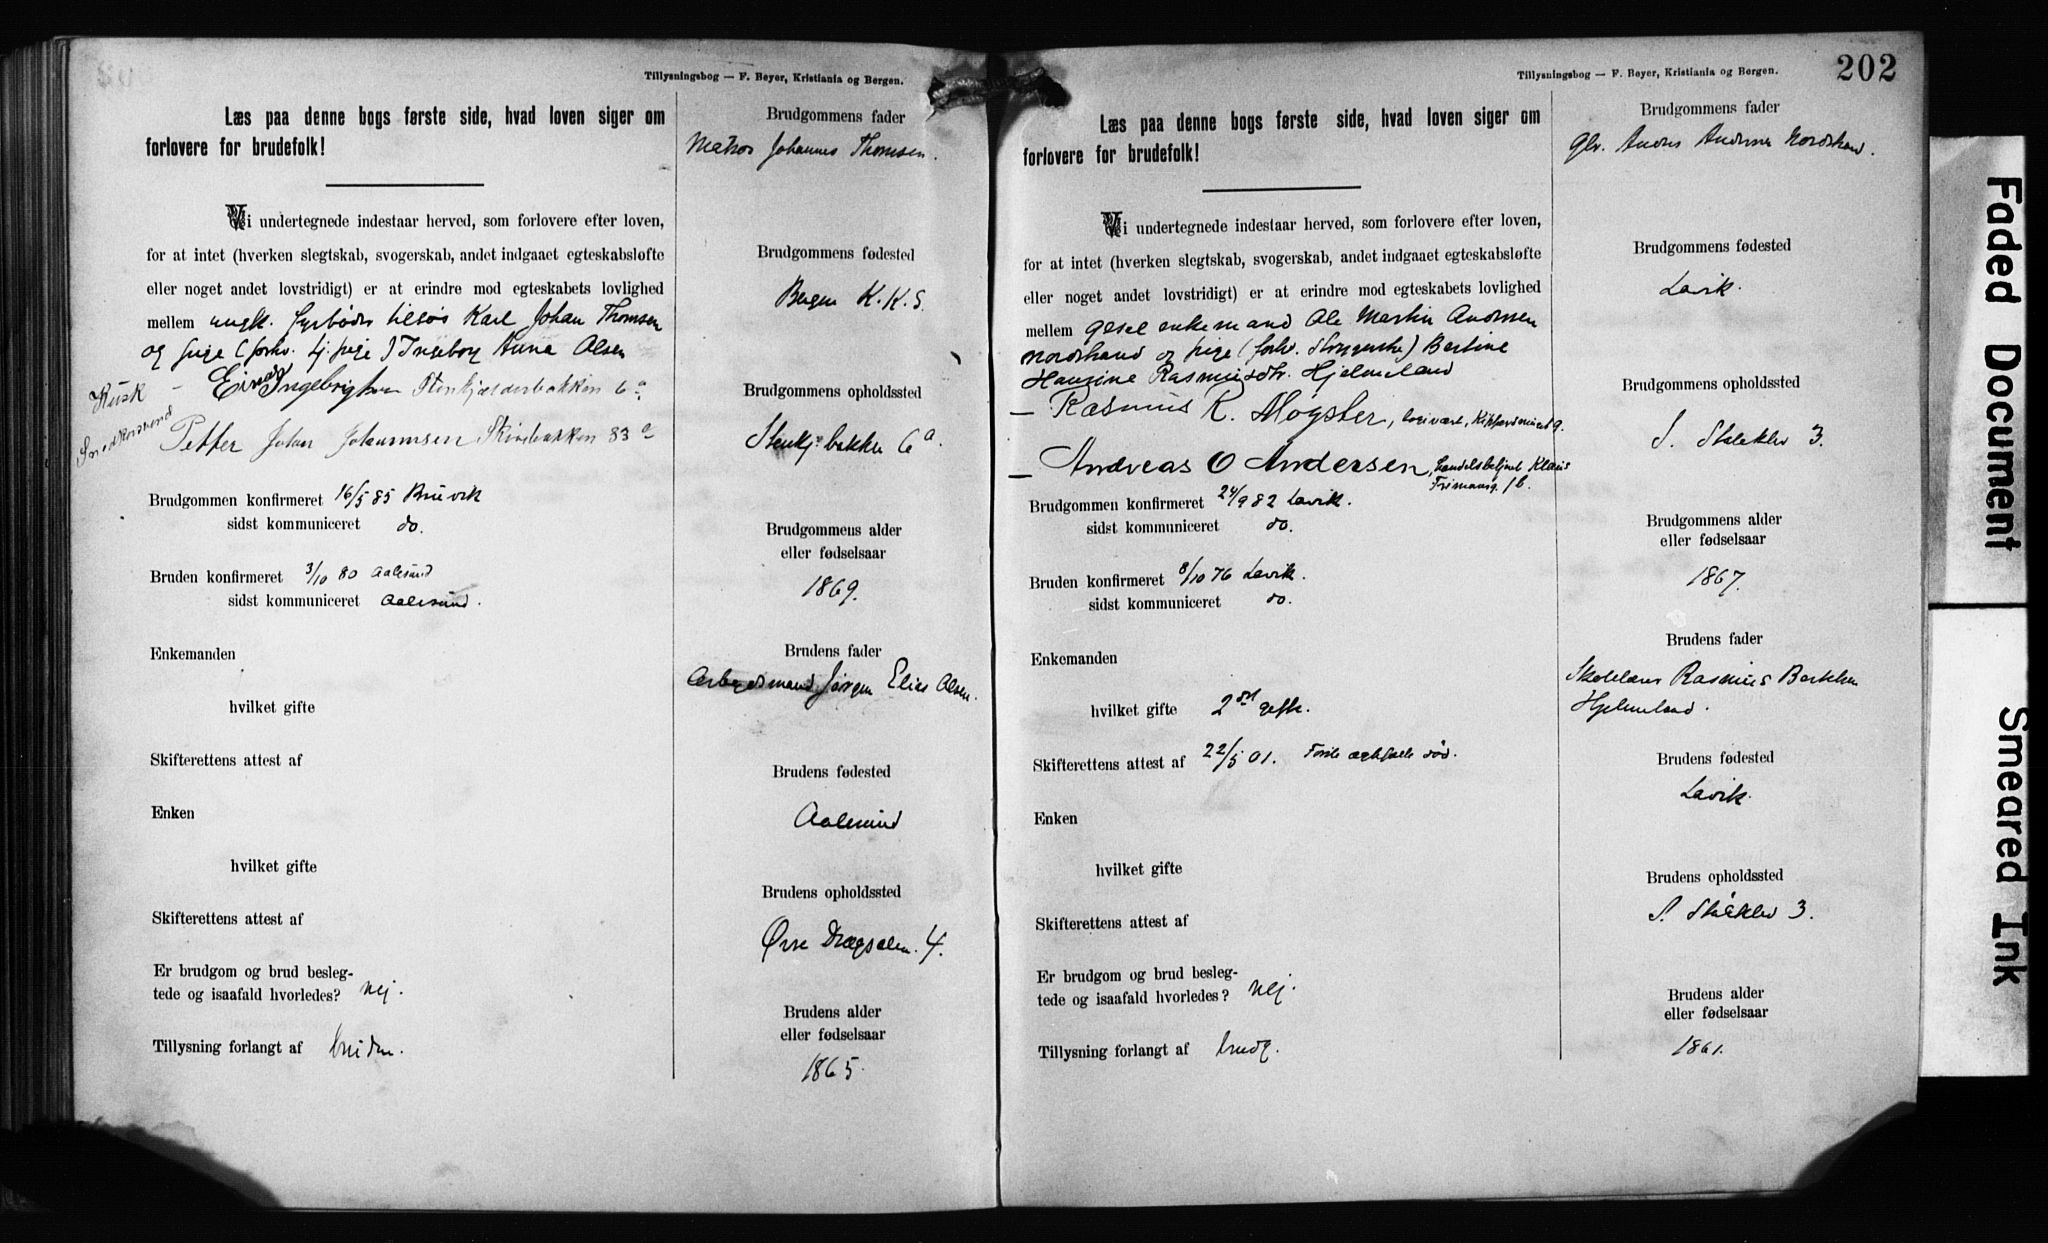 Tillysningsbog — F. Beyer, Kristiania og Bergen.
Læs paa denne bogs første side, hvad loven siger om
forlovere for brudefolk!
Vi undertegnede indestaar herved, som forlovere efter loven,
for at intet (hverken slegtskab, svogerskab, andet indgaaet egteskabsløfte
eller noget andet lovstridigt) er at erindre mod egteskabets lovlighed
mellem ungk. fyrbøder tilsøs Karl Johan Thomsen
og pige (forhv. tj. pige) Ingeborg Anna Olsen
Kusk - Einar Ingebrigtsen Stenkjelderbakken 6a
Petter Johan Johannesen Skivebakken 83a
Brudgommen konfirmeret 16/5 85 Bruvik
sidst kommuniceret do.
Bruden konfirmeret 3/10 80 Aalesund
sidst kommuniceret Aalesund.
Enkemanden
hvilket gifte
Skifterettens attest af
Enken
hvilket gifte
Skifterettens attest af
Er brudgom og brud besleg-
tede og isaafald hvorledes? Nej.
Tillysning forlangt af bruden.
Brudgommens fader
Matros Johannes Thomsen.
Brudgommens fødested
Bergen K.K.S.
Brudgommens opholdssted
Stenkj. bakken 6a.
Brudgommens alder
eller fødselsaar
1869.
Brudens fader
Arbeidsmand Jørgen Elias Olsen.
Brudens fødested
Aalesund
Brudens opholdssted
Øvre Dragsalm. 4.
Brudens alder
eller fødselsaar
1865.
Tillysningsbog — F. Beyer, Kristiania og Bergen.
202
Læs paa denne bogs første side, hvad loven siger om
forlovere for brudefolk!
Vi undertegnede indestaar herved, som forlovere efter loven,
for at intet (hverken slegtskab, svogerskab, andet indgaaet egteskabsløfte
eller noget andet lovstridigt) er at erindre mod egteskabets lovlighed
mellem gesel enkemand Ole Martin Andersen
Nordstrand og pige (forhv. Strygerske) Bertine
Hansine Rasmusdtr. Hjelmeland
- Rasmus R. Møyster,
- Andreas O Andersen, handelsbetjent Klaus
Brudgommen konfirmeret 24/9 82 Lavik.
sidst kommuniceret do.
Bruden konfirmeret 8/10 76 Lavik.
sidst kommuniceret do.
Enkemanden
hvilket gifte 2det gifte.
Skifterettens attest af 22/5 01. Første ægtefælle død.
Enken
hvilket gifte
Skifterettens attest af
Er brudgom og brud besleg-
tede og isaafald hvorledes? Nej.
Tillysning forlangt af brudg.
Brudgommens fader
Gbr. Anders Andersen Nordstrand.
Brudgommens fødested
Lavik.
Brudgommens opholdssted
S. Støleklev 3.
Brudgommens alder
eller fødselsaar
1867.
Brudens fader
Skolelærer Rasmus
Hjelmeland.
Brudens fødested
Lavik.
Brudens opholdssted
S. Støleklev 3.
Brudens alder
eller fødselsaar
1861.
Faded Document
Smeared Ink